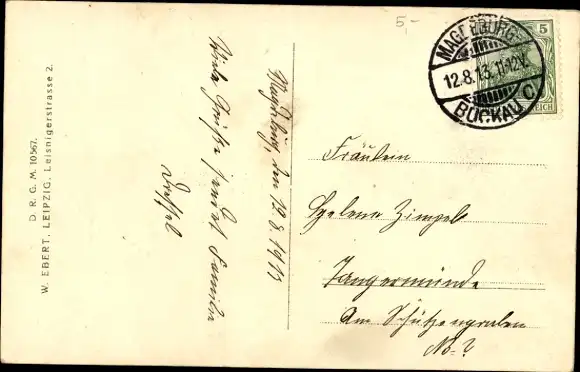 5,-
MAGDEBURG-
12.8.13. 11-12V.
BUCKAU C
5
REICH
Magdeburg, den 12.8.1913
Viele Grüße sendet Familie
Fräulein
Helene Zimpel
Tangermünde
Am Schützengraben
No-?
D. R. G. M. 10567.
W. EBERT, LEIPZIG, Leisnigerstrasse 2.